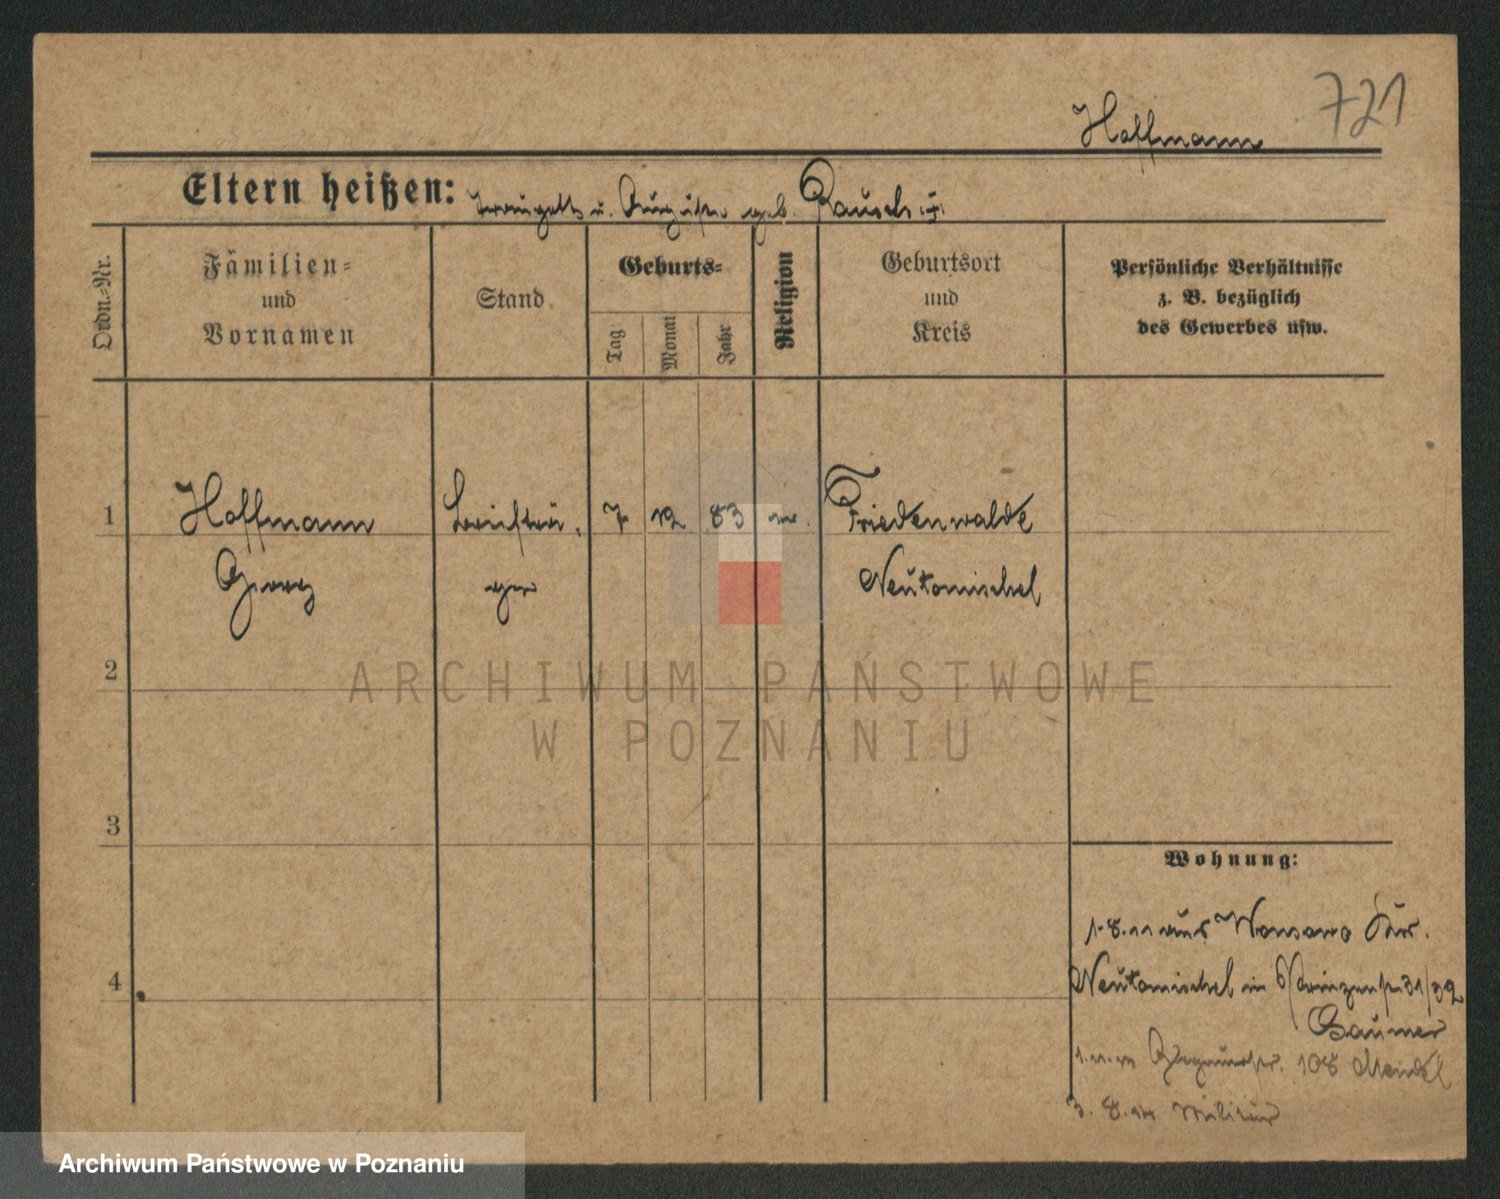 721
Hoffmann
Eltern heißen: Traugott u. Auguste geb. Rausch
Ordn.-Nr.
Familien-
und
Vornamen
Stand
Geburts-
Tag
Monat
Jahr
Religion
Geburtsort
und
Kreis
Persönliche Verhältnisse
z. B. bezüglich
des Gewerbes usw.
1 Hoffmann Briefträ- 7 12 83 ev. Friedenwalde
Georg ger Neutomischel
2
ARCHIWUM PAŃSTWOWE
W POZNANIU
3
Wohnung:
1.8.11 aus Wonsowo Kr.
4
Neutomischel in Prinzenstr 31/32
Baumer
108 Mendel
3. 8. 14 Militär
Archiwum Państwowe w Poznaniu